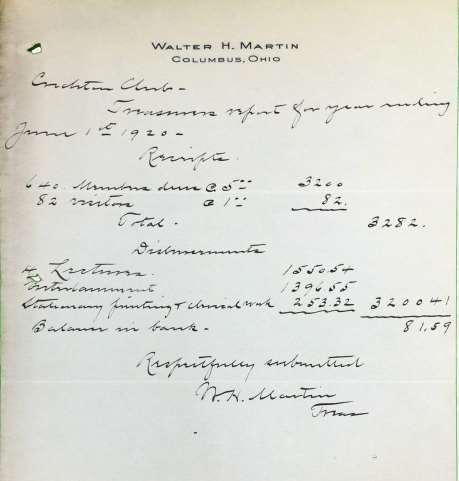 WALTER H. MARTIN
COLUMBUS, OHIO
Crichton Club -
Treasurers report for year ending
June 1st 1920 -
Receipts.
640. Members dues @ 5.00 3200
82 visitors @ 1.00 82.
Total. 3282.
Disbursements
4 Lectures. 1550.54
Entertainment 1396.55
Stationary printing & clerical work 253.32 3200 41
Balance in bank - 81,59
Respectfully submitted
W. H. Martin
Treas